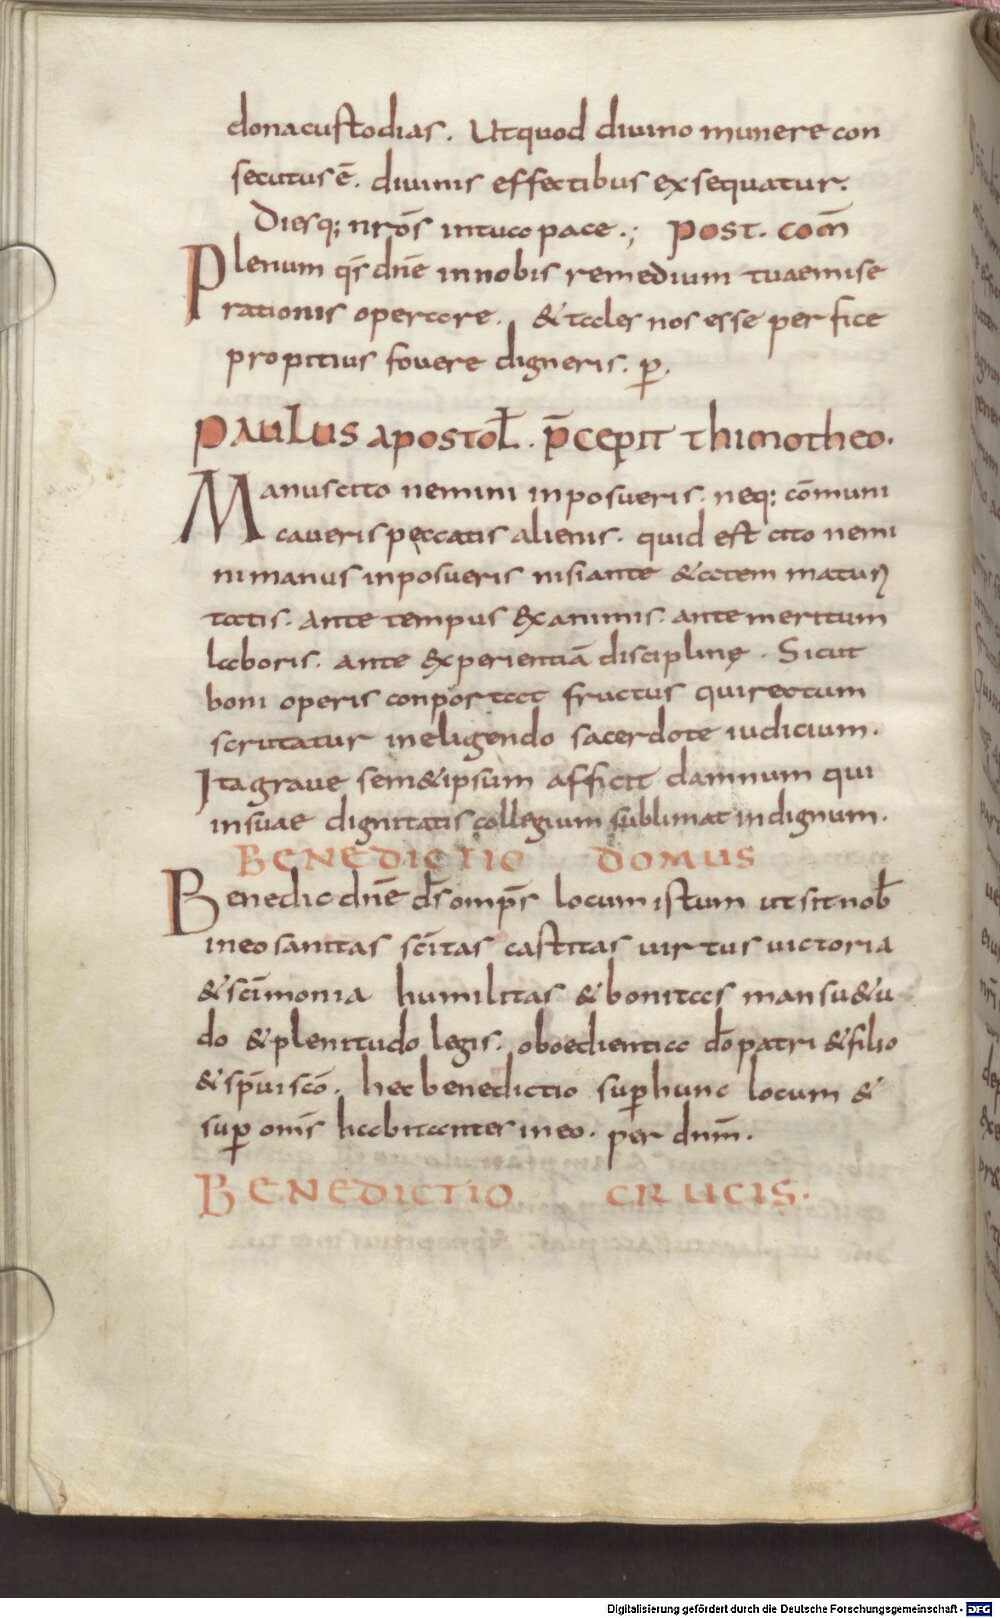 dona custodias. Ut quod divino munere con
secutus ē. divinis effectibus exsequatur.
Diesq; nrōs in tuco pace.; post. com̄
Plenum qs̄ dnē in nobis remedium tuae mise
rationis operare. & tales nos esse perfice
propitius fovere digneris. p.
PAULUS apostoL̄. p̄cepit thimotheo.
Manus cito nemini inposueris. neq; cōmuni
caveris peccatis alienis. quid est cito nemi
ni manus inposueris nisi ante &atem matur
tatis. ante tempus examinis. ante meritum
laboris. ante experientiā disciplinę. Sicut
boni operis conportat fructus qui rectum
scrutatur in eligendo sacerdote iudicium.
Ita grave sem&ipsum afficit damnum qui
in suae dignitatis collegium sublimat indignum.
BENEDICTIO DOMUS
Benedic dnē ds̄ omp̄s locum istum ut sit nob̄
in eo sanitas sc̄itas castitas virtus victoria
& sc̄imonia humilitas & bonitas mansu&u
do & plenitudo legis. oboedientia dō patri & filio
& sp̄ui scō. hec benedictio sup hunc locum &
sup om̄s habitantes in eo. per dnm̄.
BENEDICTIO CRUCIS.
Digitalisierung gefördert durch die Deutsche Forschungsgemeinschaft - DFG